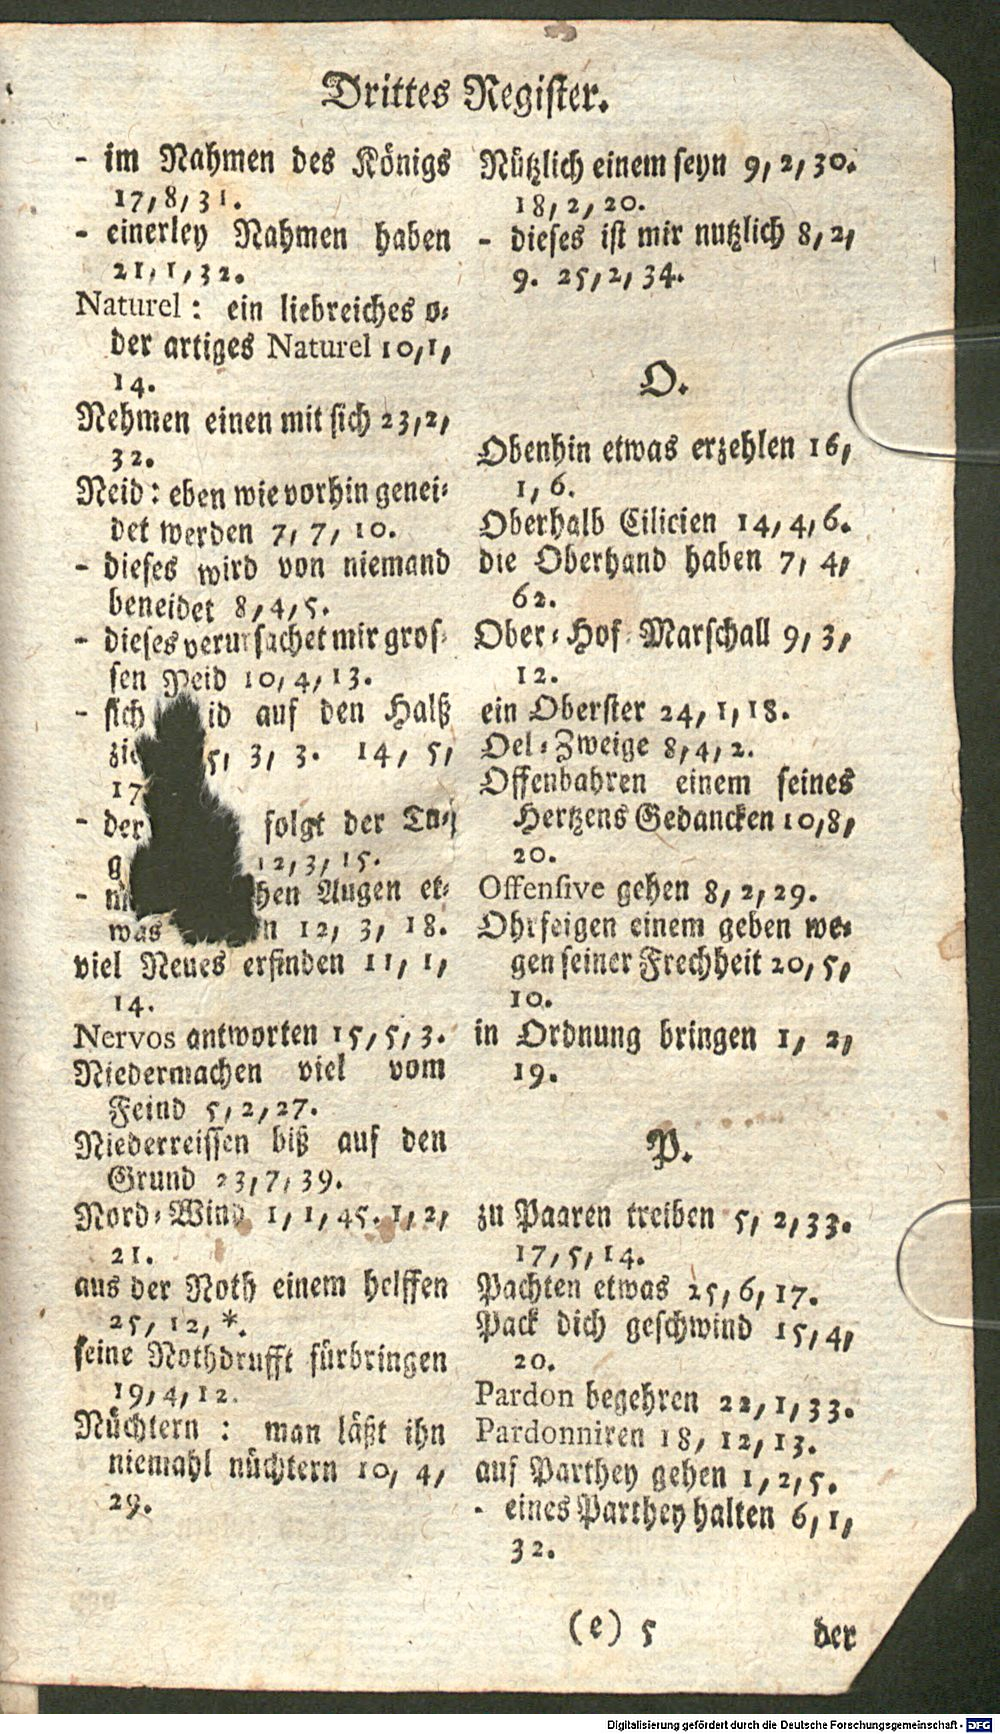 Drittes Register.
- im Nahmen des Königs
17, 8, 31.
- einerley Nahmen haben
21, 1, 32.
Naturel: ein liebreiches o-
der artiges Naturel 10, 1,
14.
Nehmen einen mit sich 23, 2,
32.
Neid: eben wie vorhin genei-
det werden 7, 7, 10.
- dieses wird von niemand
beneidet 8, 4, 5.
- dieses verursachet mir gros-
sen Neid 10, 4, 13.
- sich auf den Halß
5, 3, 3. 14, 5,
17
- der folgt der Tu-
12, 3, 15.
- Augen et-
was 12, 3, 18.
viel Neues erfinden 11, 1,
14.
Nervos antworten 15, 5, 3.
Niedermachen viel vom
Feind 5, 2, 27.
Niederreissen biß auf den
Grund 23, 7, 39.
Nord-Wind 1, 1, 45. 1, 2,
21.
aus der Noth einem helffen
25, 12, *.
seine Nothdrufft fürbringen
19, 4, 12.
Nüchtern : man läßt ihn
niemahl nüchtern 10, 4,
29.
Nützlich einem seyn 9, 2, 30.
18, 2, 20.
- dieses ist mir nutzlich 8, 2,
9. 25, 2, 34.
O.
Obenhin etwas erzehlen 16,
1, 6.
Oberhalb Cilicien 14, 4, 6.
die Oberhand haben 7, 4,
62.
Ober-Hof-Marschall 9, 3,
12.
ein Oberster 24, 1, 18.
Oel-Zweige 8, 4, 2.
Offenbahren einem seines
Hertzens Gedancken 10, 8,
20.
Offensive gehen 8, 2, 29.
Ohrfeigen einem geben we-
gen seiner Frechheit 20, 5,
10.
in Ordnung bringen 1, 2,
19.
P.
zu Paaren treiben 5, 2, 33.
17, 5, 14.
Pachten etwas 25, 6, 17.
Pack dich geschwind 15, 4,
20.
Pardon begehren 22, 1, 33.
Pardonniren 18, 12, 13.
auf Parthey gehen 1, 2, 5.
- eines Parthey halten 6, 1,
32.
(e) 5 der
Digitalisierung gefördert durch die Deutsche Forschungsgemeinschaft - DFG